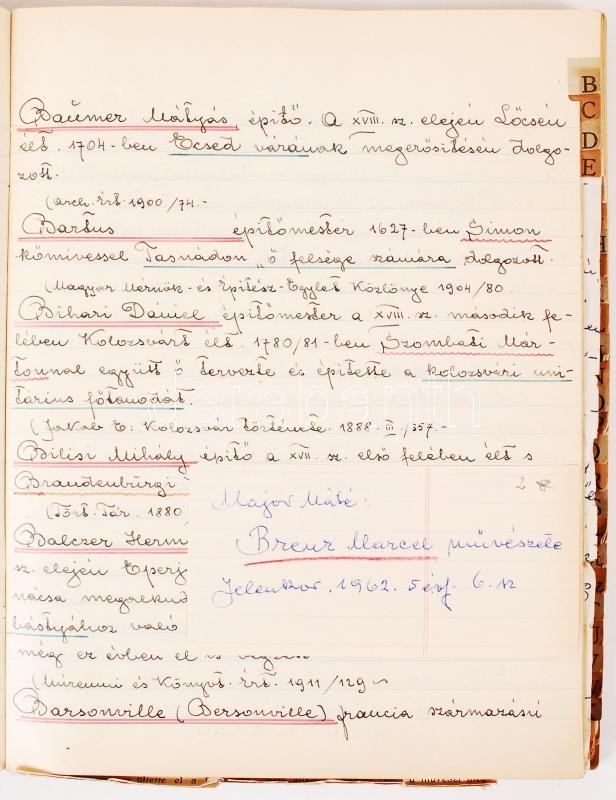 Baumer Mátyás, építő. A XVIII. sz. elején Lőcsén
élt. 1704-ben Ecsed várának megerősítésén dolgo-
zott.
(Arch. Ért. 1900/74.-
Bartus építőmester 1627-ben Simon
kőmivessel Tasnádon "ő felsége számára dolgozott.
(Magyar Mérnök- és Építész-Egylet Közlönye 1904/80.
Bihari Dániel építőmester a XVIII. sz. második fe-
lében Kolozsvárt élt. 1780/81-ben Szombati Már-
tonnal együtt ő tervezte és építette a kolozsvári uni-
tárius főtanodát.
(Jakab E: Kolozsvár története. 1888. III./357.-
Bilisi Mihály építő a XVII. sz. első felében élt s
Brandenburgi
(Tört. Tár. 1880
Balczer Herm
sz. elején Eperj
nácsa megalkud
bástyához való
még ez évben el is
(Múzeumi és Könyvt. Ért. 1911/129
Barsonville (Bersonville) francia származású
2
Major Máté:
Breuer Marcel művészete
Jelenkor. 1962. 5 évf. 6. sz
B
C
D
E
darabanth